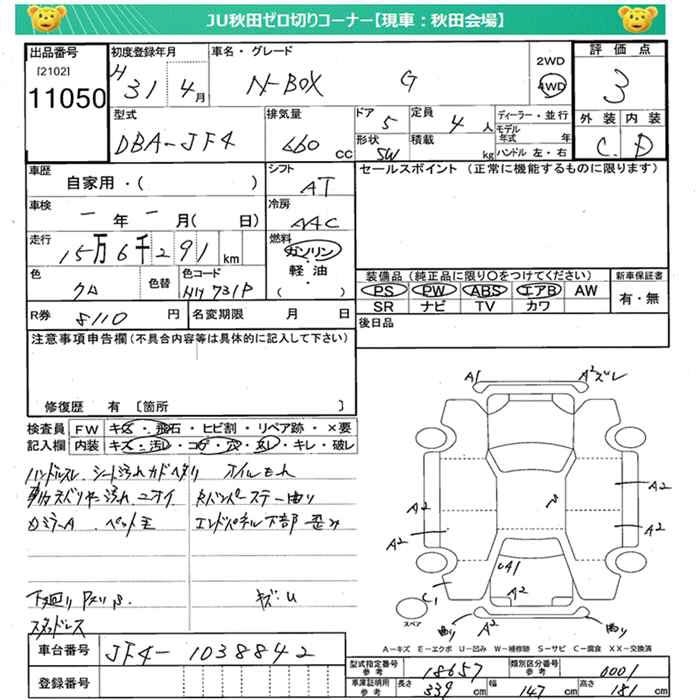 JU秋田ゼロ切りコーナー【現車：秋田会場】
出品番号
[2102]
11050
初度登録年月
H 31 4月
車名・グレード
N-BOX G
2WD
4WD
評価点
3
外装 内装
C D
型式
DBA-JF4
排気量
660 cc
ドア
5
定員
4人
形状
SW
積載
kg
ディーラー・並行
モデル年式 年
ハンドル 左・右
車歴
自家用・( )
シフト
AT
セールスポイント (正常に機能するものに限ります)
車検
ー年ー月( 日)
冷房
AAC
走行
15万6千291 km
燃料
ガソリン
・
軽油
・
( )
色
クロ
色替
色コード
NH731P
装備品 (純正品に限り〇をつけてください)
PS PW ABS エアB AW
SR ナビ TV カワ
新車保証書
有・無
R券 8110 円
名変期限 月 日
後日品
注意事項申告欄(不具合内容等は具体的に記入して下さい)
修復歴 有 [箇所 ]
検査員記入欄
FW キズ・飛石・ヒビ割・リペア跡・×要
内装 キズ・汚レ・コゲ・穴・スレ・キレ・破レ
ハンドルスレ シート汚れ オイルもれ
ニオイ
エンドパネル下部 歪み
下廻り
キズ:U
スタッドレス
A1
A2ズレ
A2
A2
A2
A2
A1
C1
A2
曲り
曲り
スペア
A-キズ E-エクボ U-凹み W-補修跡 S-サビ C-腐食 XX-交換済
車台番号 JF4-1038842
登録番号
型式指定番号 参考 18657
類別区分番号 参考 0001
車庫証明用 参考 長さ 339 cm 幅 147 cm 高さ 181 cm